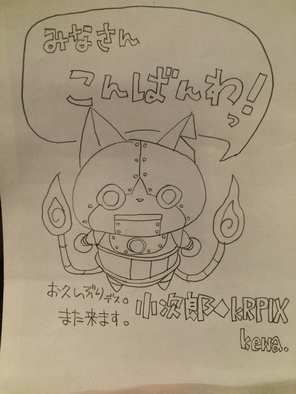 みなさん
こんばんわっ!
お久しぶりデス。
また来ます。
小次郎◆KRPIX
kewa.